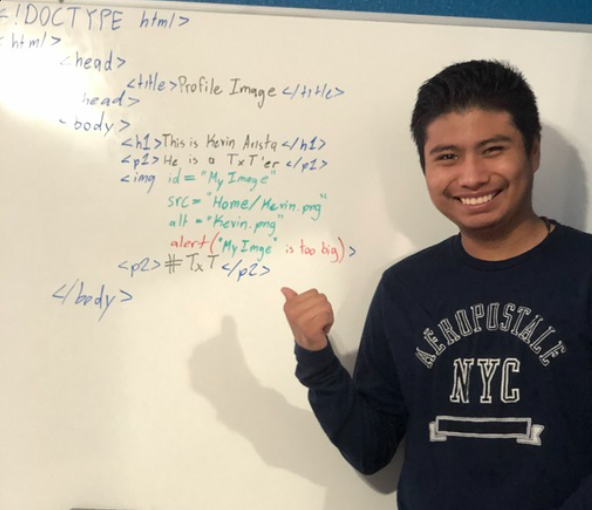 <!DOCTYPE html>
<html>
<head>
<title>Profile Image</title>
head>
<body>
<h1>This is Kevin Arista</h1>
<p1>He is a TxT'er</p1>
<img id="My Image"
src="Home/Kevin.png"
alt="Kevin.png"
alert("My Imge" is too big)>
<p2>#TxT</p2>
</body>
AEROPOSTALE
NYC